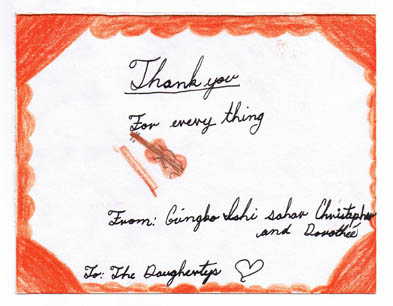 Thank you
For every thing
From: Gingko Ishi sahar Christopher
and Dorothée
To: The Daughertys